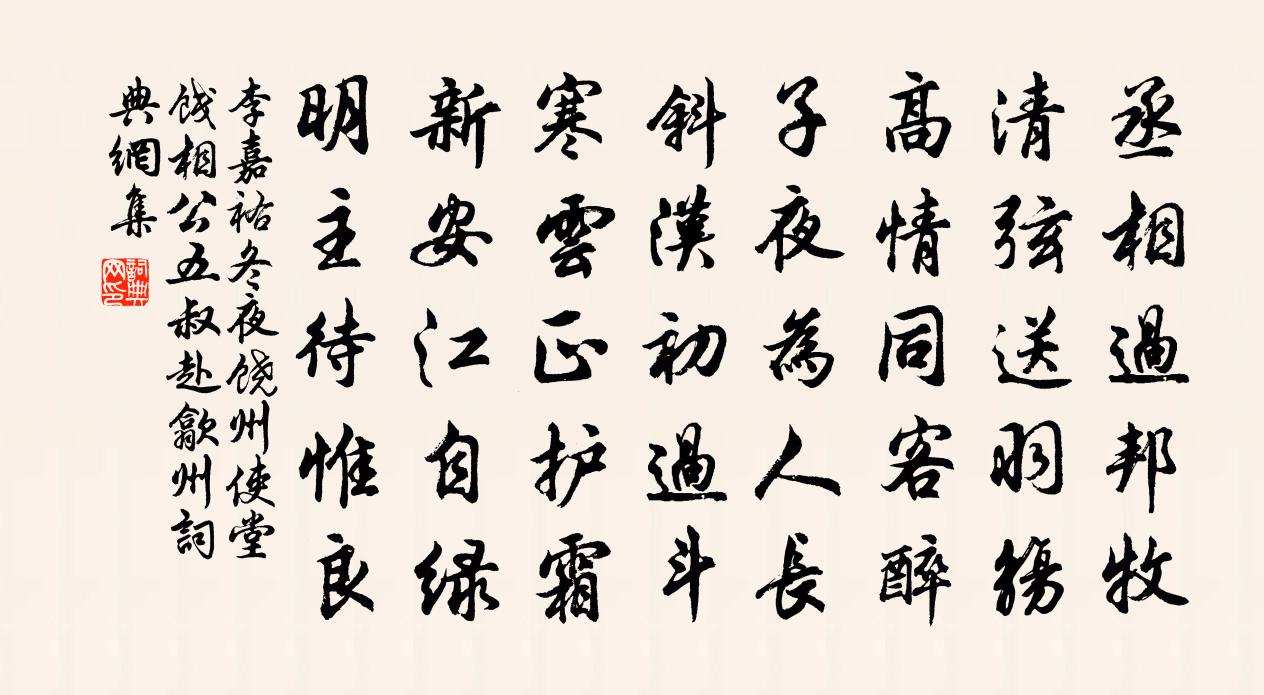 丞相過邦牧
清弦送羽觴
高情同客醉
子夜為人長
斜漢初過斗
寒雲正护霜
新安江自绿
明主待惟良
李嘉祐冬夜饶州使堂
餞相公五叔赴歙州詞
典網集
詞典
网印